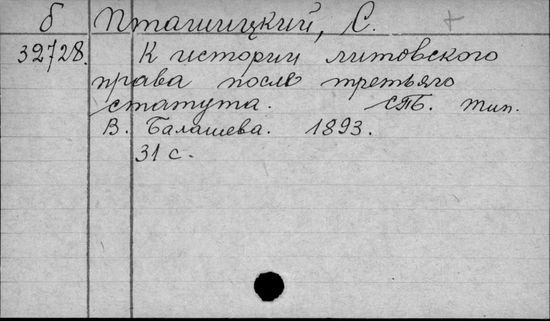 б Пташицкий, С. +
32728. К истории литовского
права после третьяго
статута. СПБ. тип.
В. Балашева. 1893.
31 с.